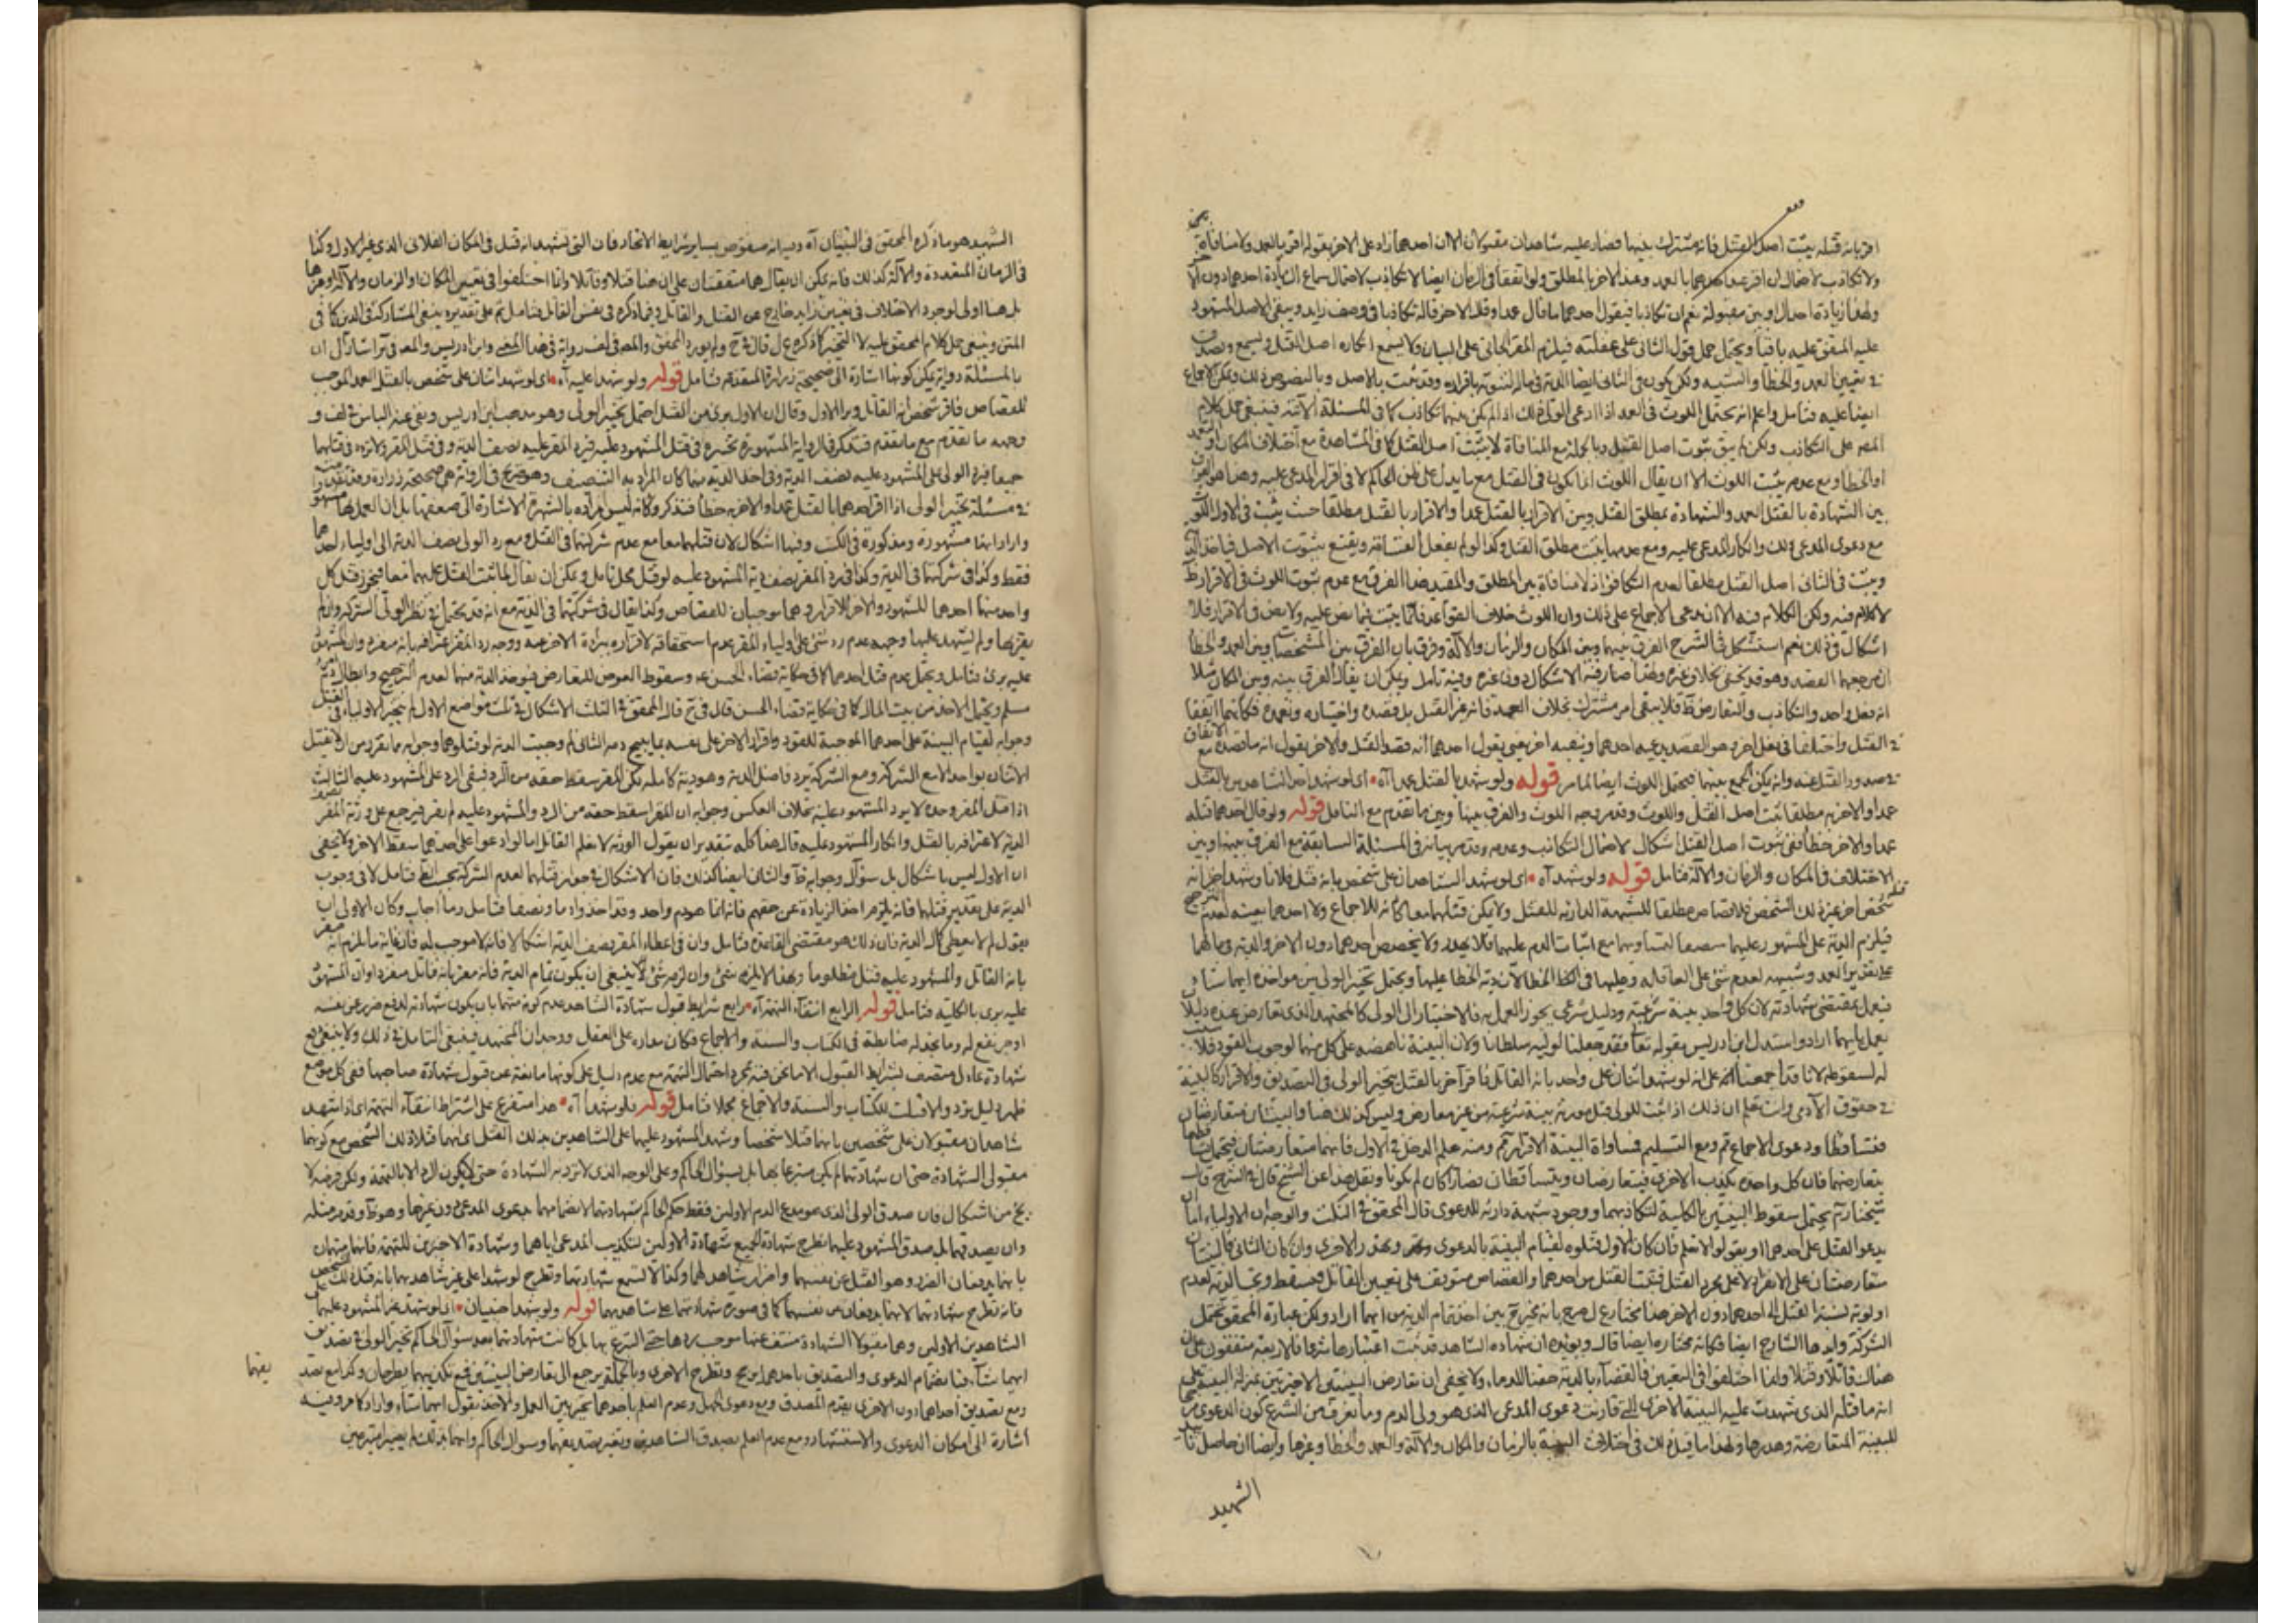 اقر بانه قتله يثبت اصل القتل فانه مشترك بينهما فصار عليه شاهدان مقبولان الا ان احدهما زاد على الاخر بقوله اقر بالعمد ولا منافاة
ولا تكاذب لاحتمال ان اقر عند احدهما بالعمد وعند الاخر بالمطلق ولو اتفقا في الزمان ايضا لا تكاذب لاحتمال سماع الزيادة احدهما دون
ولهذا زيادة احد الراويين مقبولة نعم ان تكاذبا فيقول احدهما ما قال عمدا وقال الاخر قاله تكاذبا في وصف زايد ويبقى الاصل المشهود
عليه المتفق عليه باقيا ويحتمل حمل قول الثاني على غفلته فيلزم المقر الجاني على البيان ولا يسمع انكاره اصل القتل ويسمع ويصدق
في تعيين العمد والخطأ والشبيه ولكن يكون في الثاني ايضا الدية في ماله لثبوته باقراره وقد ثبت بالاصل وبالنصوص ذلك
ايضا عليه فتامل واعلم انه يحتمل اللوث في العمد اذا ادعى الولي ذلك اذا لم يكن بينهما تكاذب كما في المسئلة الآتية فينبغي حمل كلام
المص على التكاذب ولكن لم يبق ثبوت اصل القتل وبالجملة مع المنافاة لا يثبت اصل القتل كما في المشاهدة مع اختلاف المكان
او الخطا ومع عدمه يثبت اللوث الا ان يقال اللوث انما يكون في القتل مع ما يدل على ظن الحاكم لا في اقرار المدعى عليه وهذا هو الفرق
بين الشهادة بالقتل العمد والشهادة بمطلق القتل وبين الاقرار بالقتل عمدا والاقرار بالقتل مطلقا حيث يثبت في الاول اللوث
مع دعوى المدعى ذلك وانكار المدعى عليه ومع عدمها يثبت مطلق القتل وكذا لو لم يفعل القسامة ويقنع بثبوت الاصل فياخذ الدية
ويثبت في الثاني اصل القتل مطلقا لعدم التكافؤ اذ لا منافاة بين المطلق والمقيد هذا الفرق مع عدم ثبوت اللوث في الاقرار ظ
لا كلام فيه ولكن الكلام فيه الا ان يدعى الاجماع على ذلك وان اللوث خلاف القواعد فانما يثبت فيما نص عليه ولا نص في الاقرار فلا
اشكال في ذلك نعم استشكل في الشرح الفرق بينهما وبين المكان والزمان والآلة وفرق بان الفرق بين المشخصات وبين العمد والخطأ
ان مرجعهما القصد وهو قد يخفى بخلاف غيره وهذا صار فيه الاشكال دون غيره وفيه تامل ويمكن ان يقال الفرق بينه وبين المكان مثلا
انه فعل واحد والتكاذب والتعارض ظ فلا يبقى امر مشترك بخلاف العمد فانه غير القتل بل قصده واختياره وتعمده فكانهما اتفقا
في القتل واختلفا في فعل اخر وهو القصد يدعيه احدهما وينفيه اخر يعني يقول احدهما انه قصد القتل والاخر يقول انه ما قصده مع
صدور القتل عنه وانه يمكن الجمع بينهما فيحتمل اللوث ايضا لما مر قوله ولو شهد بالقتل عمدا آه اي لو شهد احد الشاهدين بالقتل
عمدا والاخر به مطلقا ثبت اصل القتل واللوث وقد مر وجه اللوث والفرق بينها وبين ما تقدم مع التامل قوله ولو قال احدهما قتله
عمدا والاخر خطأ ففي ثبوت اصل القتل اشكال لاحتمال التكاذب وعدمه وقد مر بيانه في المسئلة السابقة مع الفرق بينها وبين
الاختلاف في المكان والزمان والآلة فتامل قوله ولو شهد آه اي لو شهد الشاهدان على شخص بانه قتل فلانا وشهد اخران
شخص اخر غيره ذلك الشخص فلا قصاص مطلقا للشبهة الدارئة للقتل ولا يمكن قتلهما معا كانه للاجماع ولا احدهما بعينه لعدم
فيلزم الدية على المشهود عليهما نصفها لتساويهما مع اثبات الدم عليهما فلا يهدر ولا يخصص احدهما دون الاخر والدية في مالهما
على تقدير العمد وشبيهه لعدم شئ على العاقلة وعليهما في الخطا المحض لان دية الخطا عليها ويحتمل تخيير الولي بين مواخذة ايهما شاء
فيعمل بمقتضى شهادته لان كل واحد بينة شرعية ودليل شرعي يجوز العمل به فالاختيار الى الولي كالمجتهد الذي تعارض عنده دليلان
يعمل بايهما اراد واستدل ابن ادريس بقوله تعا فقد جعلنا لوليه سلطانا ولان البينة ناهضة على كل منهما لوجوب القود فلا
له لسقوطه لانا قد اجمعنا على انه لو شهد اثنان على واحد بانه القاتل فاقر آخر بالقتل يتخير الولي في التصديق والاقرار كالبينة
في حقوق الآدمي وانت تعلم ان ذلك اذا ثبت للولي قتل مورثه ببينة شرعية من غير معارض وليس كذلك هنا والبينتان متعارضتان
فتساقطا ودعوى الاجماع ثم ومع التسليم فمساواة البينة الاقرار ثم ومنه علم الدخل في الاول فانهما متعارضتان
بتعارضهما فان كل واحدة يكذب الاخرى فيتعارضان ويتساقطان فصارا كان لم يكونا ونقل هذا عن الشيخ قال في الشرح قاب
شيخنا رَه يحتمل سقوط البينتين بالكلية لتكاذبهما ووجود شبهة دارئة للدعوى قال المحقق في النكت والوجه ان الاولياء اما ان
يدعوا القتل على احدهما او يقولوا لا نعلم فان كان الاول قتلوه لقيام البينة بالدعوى وتهدر الاخرى وان كان الثاني فالبينتان
متعارضتان على الانفراد لا على مجرد القتل فيثبت القتل من احدهما والقصاص يتوقف على تعيين القاتل فيسقط وتجب الدية لعدم
اولوية نسبة القتل الى احدهما دون الاخر
الشركة
هناك قاتلا وقتلا وانما اختلفوا في التعيين فالقضاء بالدية حقنا للدماء ولا يخفى ان تعارض البينتين
انه ما قتله الذي شهدت عليه البينة الاخرى
للبينة المتعارضة وهدرها ولهذا ما قيل ذلك في اختلاف البينة بالزمان والمكان والآلة والعمد والخطا وغيرها وايضا ان حاصل
الشهيد
الشهيد هو ما ذكره المحقق في التبيان آه وفيه انه منقوض بساير شرايط الاتحاد فان التي تشهد انه قتل في المكان الفلاني الذي غير الاول وكذا
في الزمان المتعددة والآلة كذلك فانه يمكن ان يقال هما متفقتان على ان هنا قتلا وقاتلا وانما اختلفوا في تعيين المكان او الزمان والآلة وغيرها
بل هنا اولى لوجود الاختلاف في تعيين زايد خارج عن القتل والقاتل وفيما ذكره في نفس القاتل فتامل ثم على تقديره ينبغي المشاركة في الدية كما في
المتن وينبغي حمل كلام المحقق عليه لا التخيير كما ذكره
بالمسئلة رواية يمكن كونها اشارة الى صحيحة زرارة المتقدمة فتامل قوله ولو شهدا عليه آه اي لو شهد اثنان على شخص بالقتل العمد الموجب
للقصاص فاقر شخص انه القاتل وبرا الاول وقال ان الاول بري من القتل احتمل تخيير الولي وهو مذهب ابن ادريس ونفى عنه الباس في لف و
وجهه ما تقدم مع ما تقدم فتذكر
جميعا فيرد الولي على المشهود عليه نصف الدية وفي اخذ الدية منهما كان المراد به التنصيف وهو صريح في الرواية وهي صحيحة زرارة
في مسئلة تخيير الولي اذا اقر احدهما بالقتل عمدا والاخر به خطأ فتذكر وكانه ليس مراده بالشهرة الاشارة الى ضعفها بل ان العمل بها مشهور
واراد انها مشهورة ومذكورة في الكتب وفيها اشكال لان قتلهما معا مع عدم شركتهما في القتل ومع رد الولي نصف الدية الى اولياء احدهما
فقط وكذا في شركتهما في الدية وكذا في رد المقر نصف دية المشهود عليه لو قتل محل تامل ويمكن ان يقال لما ثبت القتل عليهما معا فيجوز قتل كل
واحد منهما احدهما للشهود والاخر للاقرار وهما موجبان للقصاص وكذا يقال في شركتهما في الدية مع انه قد يحتمل في نظر الولي الشركة وان لم
يقر بها ولم يشهد عليها وجهه عدم رد شئ على اولياء المقر لعدم استحقاقه لاقراره ببراءة الاخر عنه ووجه رد المقر اعترافه بانه منفرد وان المشهود
عليه بري فتامل ويحتمل عدم قتل احدهما كما في حكاية قضاء الحسن ع وسقوط القصاص للتعارض فيؤخذ الدية منهما لعدم الترجيح وابطال دم
مسلم ويحتمل الاخذ من بيت المال كما في حكاية قضاء الحسن قال في ح قال المحقق في النكت الاشكال في ثلث مواضع الاول لم يتخير الاولياء في القتل
وجوابه لقيام البينة على احدهما الموجبة للقود واقرار الاخر على نفسه بما يبيح دمه الثاني لم وجبت الدية لو قتلوهما وجوابه ما تقرر من ان لا يقتل
الاثنان بواحد الا مع الشركة ومع الشركة يرد فاضل الدية وهو دية كاملة لكن المقر سقط حقه من الرد فبقي الرد على المشهود عليه الثالث
اذا قتل المقر وحده لا يرد المشهود عليه بخلاف العكس وجوابه ان المقر اسقط حقه من الرد والمشهود عليه لم يقر فيرجع على ورثة المقر
الدية لاعترافه بالقتل وانكار المشهود عليه قال هذا كله بتقدير ان يقول الورثة لا نعلم القاتل اما لو ادعوا على احدهما سقط الاخر ولا يخفى
ان الاول ليس باشكال بل سؤال وجوابه ظ والثاني ايضا كذلك فان الاشكال في جواز قتلهما لعدم الشركة فتامل لا في وجوب
الدية على تقدير قتلهما فانه يلزم اخذ الزيادة عن حقهم فانه انما هو دم واحد وقد اخذوا دما ونصفا فتامل وما اجاب وكان الاولى ان
يقول لم لا يعطي كمال الدية فان ذلك هو مقتضى القاعدة فتامل وان في اعطاء المقر نصف الدية اشكالا فانه لا موجب له
بانه القاتل والمشهود عليه قتل مظلوما وبهذا لا يلزمه شئ وان لزمه شئ لا ينبغي ان يكون تمام الدية فانه مقر بانه قاتل منفردا وان المشهود
عليه بري بالكلية فتامل قوله الرابع انتفاء التهمة آه رابع شرايط قبول شهادة الشاهد عدم كونه متهما بان يكون شهادته لدفع ضرر عن نفسه
او جر نفع له وما نجد له ضابطة في الكتاب والسنة والاجماع فكان مداره على العقل ووجدان المجتهد فينبغي التامل في ذلك ولا ينبغي منع
شهادة عادل متصف بشرايط القبول الا ما نحن فيه بمجرد احتمال التهمة مع عدم دليل على كونها مانعة عن قبول شهادة صاحبها ففي كل موضع
ظهر دليل يرد والا قبلت للكتاب والسنة والاجماع مجملا فتامل قوله فلو شهدا آه هذا متفرع على اشتراط انتفاء التهمة اي اذا شهد
شاهدان مقبولان على شخصين بانهما قتلا شخصا وشهد المشهود عليهما على الشاهدين بذلك القتل اي انهما قتلا ذلك الشخص مع كونهما
مقبولي الشهادة حتى ان شهادتهما لم يكن متبرعا بها بل بسؤال الحاكم وعلى الوجه الذي لا ترد به الشهادة حتى لا يكون الرد الا بالتهمة ولكن فرضه لا
يخ من اشكال فان صدق الولي الذي هو مدعي الدم الاولين فقط حكم الحاكم بشهادتهما لانضمامهما بدعوى المدعي دون غيرها وهو ظ وقد مر مثله
وان يصدقهما بل صدق المشهود عليهما طرح شهادة الجميع شهادة الاولين لتكذيب المدعي اياهما وشهادة الاخرين للتهمة فانهما متهمان
بانهما يدفعان الضرر وهو القتل عن نفسهما واضرار شاهدهما وكذا لا تسمع شهادتهما وتطرح لو شهدا على غير شاهديهما بانه قتل ذلك الشخص
فانه تطرح شهادتهما لانهما يدفعان عن نفسهما كما في صورة شهادتهما على شاهديهما قوله ولو شهد اجنبيان اي لو شهد غير المشهود عليهما
الشاهدين الاولين وهما مقبولا الشهادة منتف عنهما موجب ردها حتى التبرع بها بل كانت شهادتهما بعد سؤال الحاكم تخير الولي في تصديق
ايهما شاء فبانضمام الدعوى والتصديق باحدهما يرجح وتطرح الاخرى وبالجملة يرجع الى تعارض البينتين فمع تكذيبهما يطرحان وكذا مع تصديقهما
ومع تصديق احداهما دون الاخرى يقدم المصدق ومع دعوى الجهل وعدم العلم باحدهما يتخير بين العمل والاخذ بقول ايهما شاء واراد كما مر وفيه
اشارة الى امكان الدعوى والاستشهاد مع عدم العلم بصدق الشاهدين وبغير تصديقهما وسؤال الحاكم وانهما بذلك لم يصيرا متبرعين